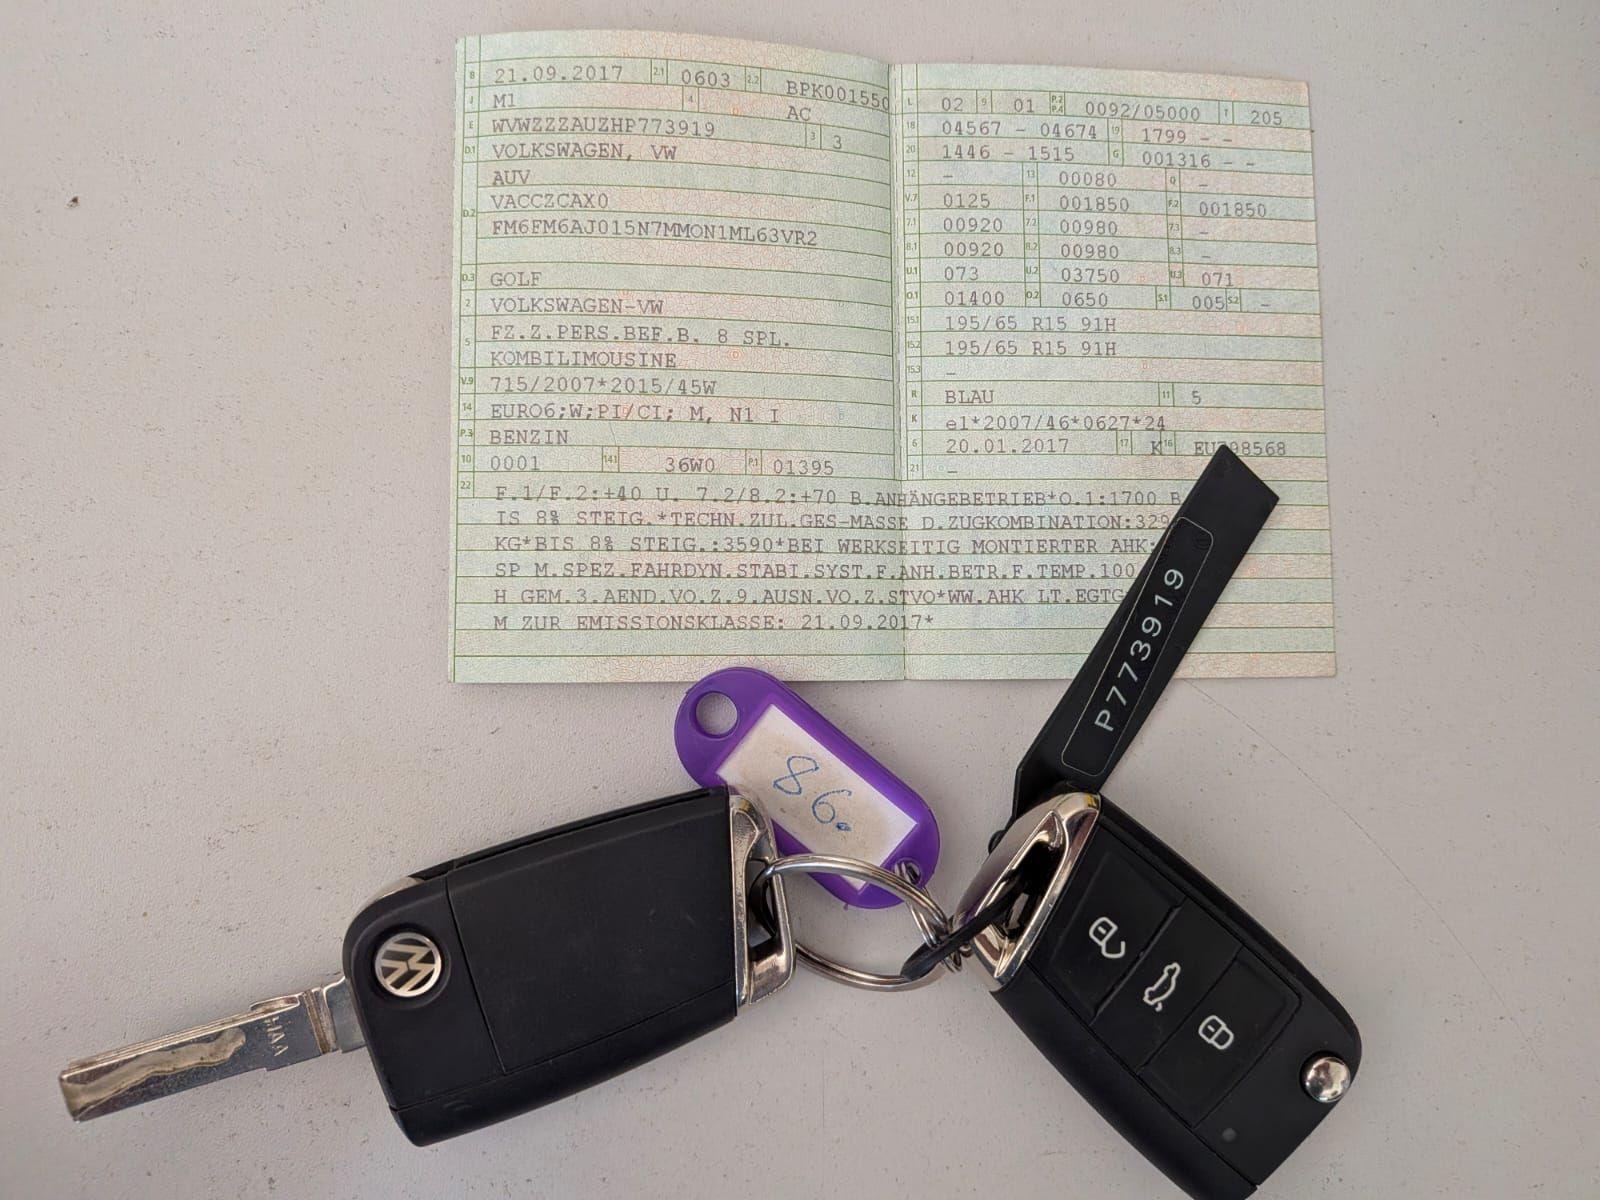 B 21.09.2017 2.1 0603 2.2 BPK001550
J M1 4 AC
E WVWZZZAUZHP773919 3 3
D.1 VOLKSWAGEN, VW
AUV
D.2 VACCZCAX0
FM6FM6AJ015N7MMON1ML63VR2
D.3 GOLF
2 VOLKSWAGEN-VW
5 FZ.Z.PERS.BEF.B. 8 SPL.
KOMBILIMOUSINE
V.9 715/2007*2015/45W
14 EURO6;W;PI/CI; M, N1 I
P.3 BENZIN
10 0001 14.1 36W0 P.1 01395
L 02 9 01 P.2 P.4 0092/05000 T 205
18 04567 - 04674 19 1799 - -
20 1446 - 1515 G 001316 - -
12 - 13 00080 Q -
V.7 0125 F.1 001850 F.2 001850
7.1 00920 7.2 00980 7.3 -
8.1 00920 8.2 00980 8.3 -
U.1 073 U.2 03750 U.3 071
O.1 01400 O.2 0650 S.1 005 S.2 -
15.1 195/65 R15 91H
15.2 195/65 R15 91H
15.3 -
R BLAU 11 5
K e1*2007/46*0627*24
6 20.01.2017 17 K 16 EU 98568
21 -
22 F.1/F.2:+40 U. 7.2/8.2:+70 B.ANHÄNGEBETRIEB*O.1:1700 B
IS 8% STEIG.*TECHN.ZUL.GES-MASSE D.ZUGKOMBINATION:329
KG*BIS 8% STEIG.:3590*BEI WERKSEITIG MONTIERTER AHK:
SP M.SPEZ.FAHRDYN.STABI.SYST.F.ANH.BETR.F.TEMP.100
H GEM.3.AEND.VO.Z.9.AUSN.VO.Z.STVO*WW.AHK LT.EGTG
M ZUR EMISSIONSKLASSE: 21.09.2017*
P773919
86.
HAA